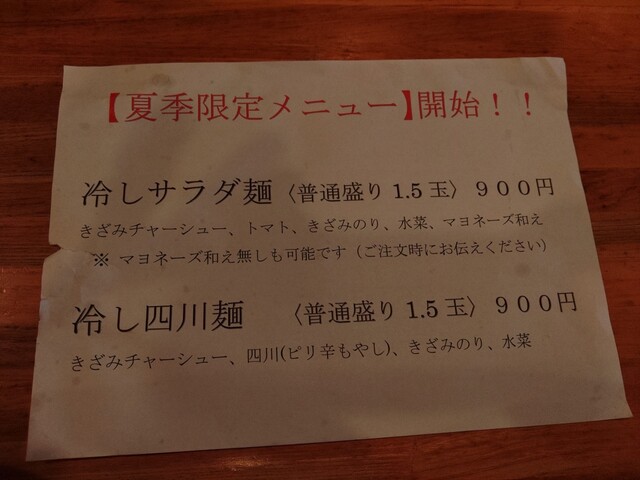 【夏季限定メニュー】開始！！
冷しサラダ麺〈普通盛り 1.5 玉〉９００円
きざみチャーシュー、トマト、きざみのり、水菜、マヨネーズ和え
※ マヨネーズ和え無しも可能です（ご注文時にお伝えください）
冷し四川麺　〈普通盛り 1.5 玉〉９００円
きざみチャーシュー、四川(ピリ辛もやし)、きざみのり、水菜